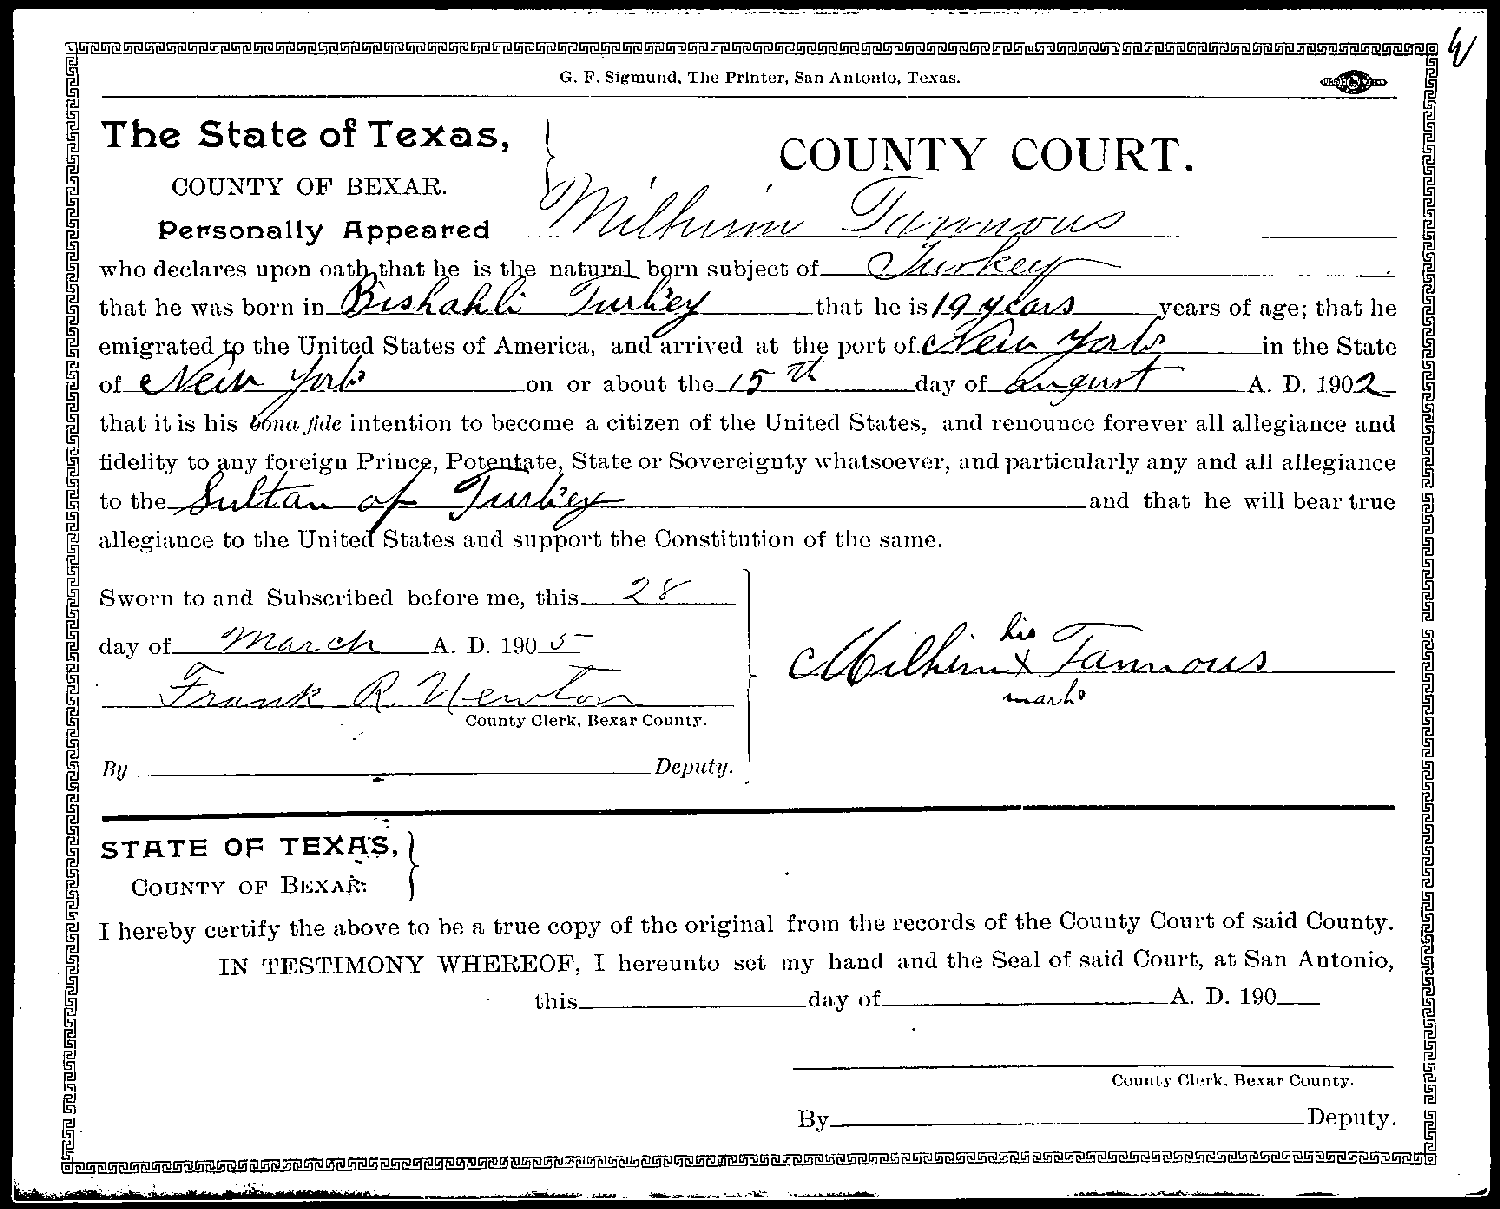 G. F. Sigmund, The Printer, San Antonio, Texas.
The State of Texas,
COUNTY OF BEXAR.
COUNTY COURT.
Personally Appeared Milhim Tannous
who declares upon oath that he is the natural born subject of Turkey
that he was born in Bishahli Turkey that he is 19 years years of age; that he
emigrated to the United States of America, and arrived at the port of New York in the State
of New York on or about the 15th day of august A. D. 1902
that it is his bona fide intention to become a citizen of the United States, and renounce forever all allegiance and
fidelity to any foreign Prince, Potentate, State or Sovereignty whatsoever, and particularly any and all allegiance
to the Sultan of Turkey and that he will bear true
allegiance to the United States and support the Constitution of the same.
Sworn to and Subscribed before me, this 28
day of March A. D. 1905
Frank R. Newton
County Clerk, Bexar County.
By Deputy.
his
Milhim x Tannous
mark
STATE OF TEXAS,
COUNTY OF BEXAR.
I hereby certify the above to be a true copy of the original from the records of the County Court of said County.
IN TESTIMONY WHEREOF, I hereunto set my hand and the Seal of said Court, at San Antonio,
this day of A. D. 190
County Clerk, Bexar County.
By Deputy.